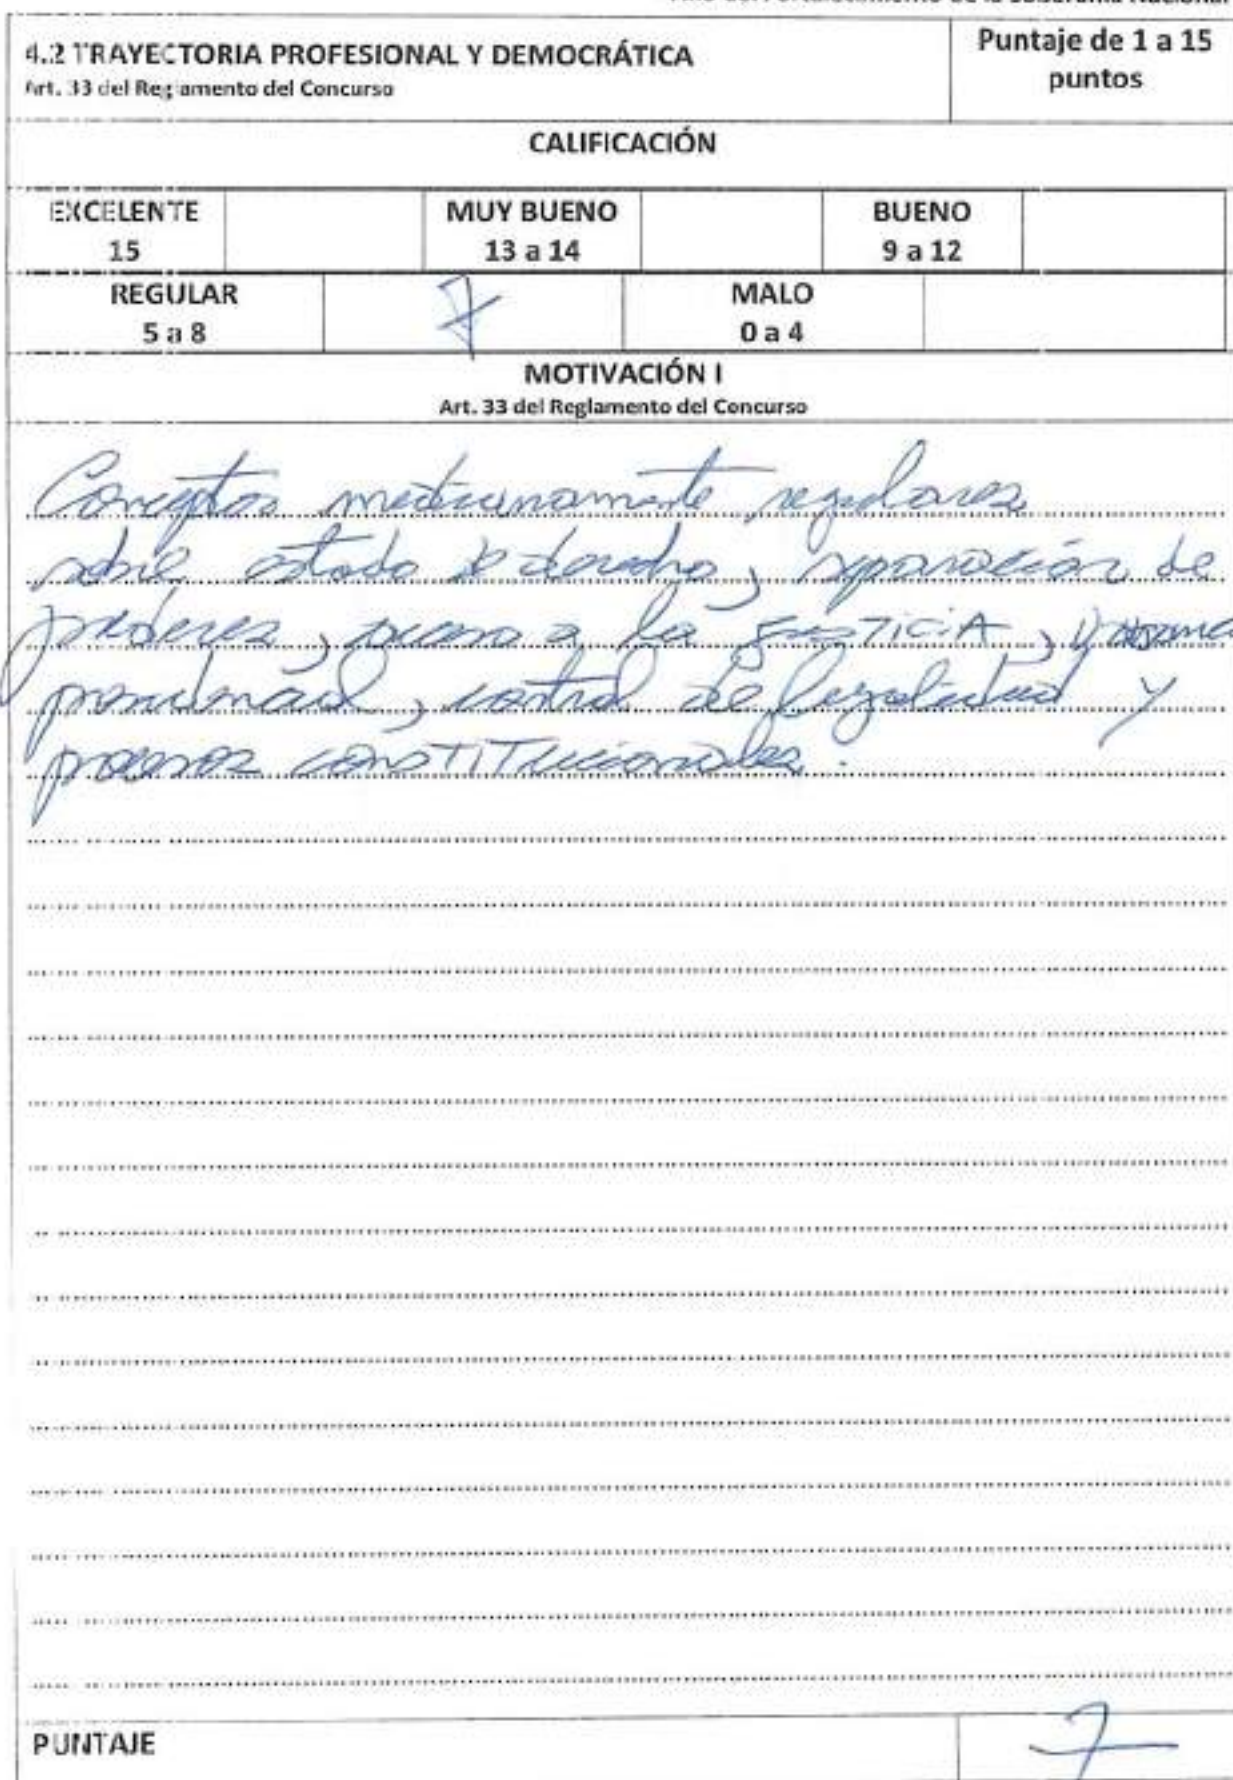 4.2 TRAYECTORIA PROFESIONAL Y DEMOCRÁTICA
Art. 33 del Reglamento del Concurso
Puntaje de 1 a 15
puntos
CALIFICACIÓN
EXCELENTE
15
MUY BUENO
13 a 14
BUENO
9 a 12
REGULAR
5 a 8
7
MALO
0 a 4
MOTIVACIÓN I
Art. 33 del Reglamento del Concurso
Conceptos medianamente regulares
sobre estado de derecho, separación de
poderes, acceso a la JUSTICIA,
control de legalidad y
procesos consTITucionales.
PUNTAJE
7